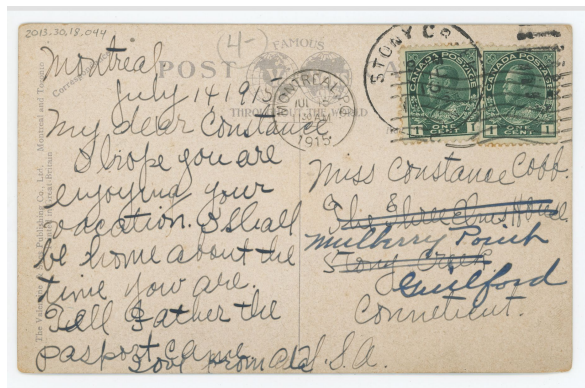 2013.30.18.044
4-
POST
FAMOUS
THROUGHOUT THE WORLD
Montreal
July 14 1915
My dear Constance
I hope you are
enjoying your
vacation. I shall
be home about the
time you are.
Tell Father the
pasport came
Love from
U.S.A.
STONY CR
MONTREAL P.Q.
JUL 15
1915
CANADA POSTAGE
1 ONE CENT 1
CANADA POSTAGE
1 ONE CENT 1
Miss Constance Cobb.
The Three Elms House
Mulberry Point
Stony Creek
Guilford
Conneticut.
The Valentine & Sons Publishing Co., Ltd. Montreal and Toronto
Printed in Great Britain